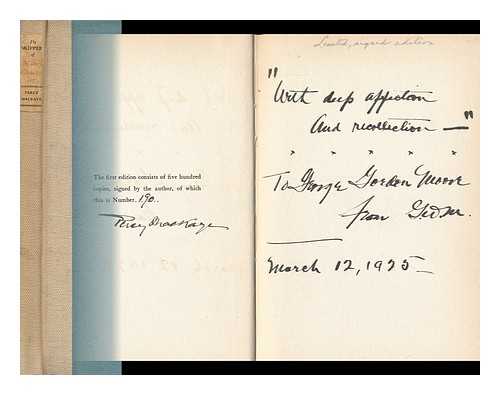 The
SKIPPER
of
PERCY
MACKAYE
The first edition consists of five hundred
copies, signed by the author, of which
this is Number. 190..
Percy MacKaye
Limited, signed edition
"With deep affection
And recollection —"
" " " " "
To George Gordon Moore
from
March 12, 1925